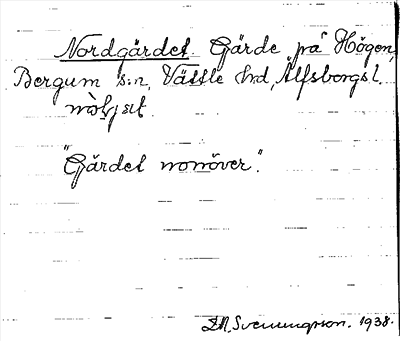 Nordgärdet Gärde på Högen,
Bergum s:n, Vättle hd, Älfsborgs l.
"Gärdet norröver".
Svenningson. 1938.